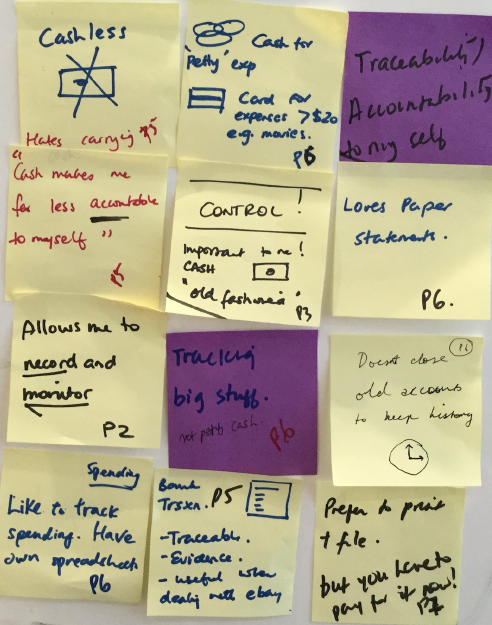 Cashless
Hates carrying P5
Cash for
'Petty' exp
Card for
expenses > $20
e.g. movies.
P6
Traceability/
Accountability
to my self
"Cash makes me
far less accountable
to myself"
P5
CONTROL!
Important to me!
CASH
"old fashioned"
P3
Loves Paper
statements.
P6.
Allows me to
record and
monitor
P2
Tracking
big stuff.
not petty cash.
P6
P6
Doesnt close
old accounts
to keep history
Spending
Like to track
spending. Have
own spreadsheet
P6
Bank
Trsxn. P5
- Traceable.
- Evidence.
- useful when
dealing with ebay
Prefer to print
+ file.
but you have to
pay for it now!
P7